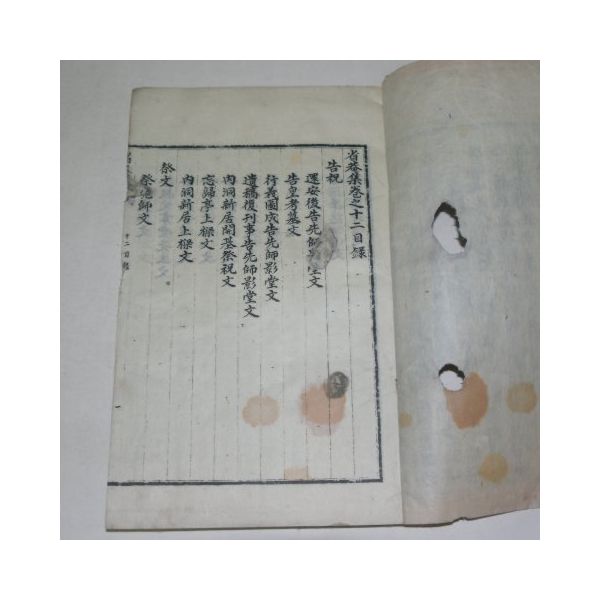 省菴集卷之十二目錄
告祝
還安後告先師影堂文
告皇考墓文
行義圖成告先師影堂文
遺稿復刊事告先師影堂文
內洞新居開基祭祝文
忘歸亭上樑文
內洞新居上樑文
祭文
祭先師文
十二目錄